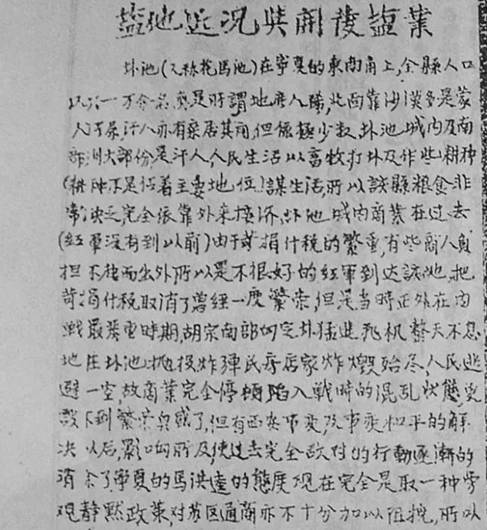 盐池近况与开发盐业
盐池(又称花马池)在宁夏的东南角上,全县人口
只六一万余,真是所谓地广人稀,北面靠沙漠多是蒙
人万余汗八亦有杂居其间但係极少数,盐池城内及南
部则大部份是汗人人民生活以畜牧打盐及作些耕种
(耕种不是佔着主要地位)谋生活,所以該縣粮食非
常缺乏完全依靠外来接济,盐池城内商業在过去
(红軍没有到以前)由于苛捐什税的繁重,有些商人負
担不起而出外所以是不很好的红軍到达該地,把
苛捐什税取消了曾经一度繁荣,但是当時正处在内
戰最荣重時期,胡宗南部切定盐猛进,飛机整天不息
地在盐池抛投炸弹民房店家炸燬殆尽,人民逃
避一空,故商業完全停頓陷入戰時的混乱狀態受
設下到繁荣桌或了,但有西安事变,及事变和平的解
决以后,影响所及,使过去完全敌对的行動逐漸的
消除了宁夏的馬洪逵的態度现在完全是取一种旁
观静黙政策对苏区通商亦不十分加以阻撓,所以